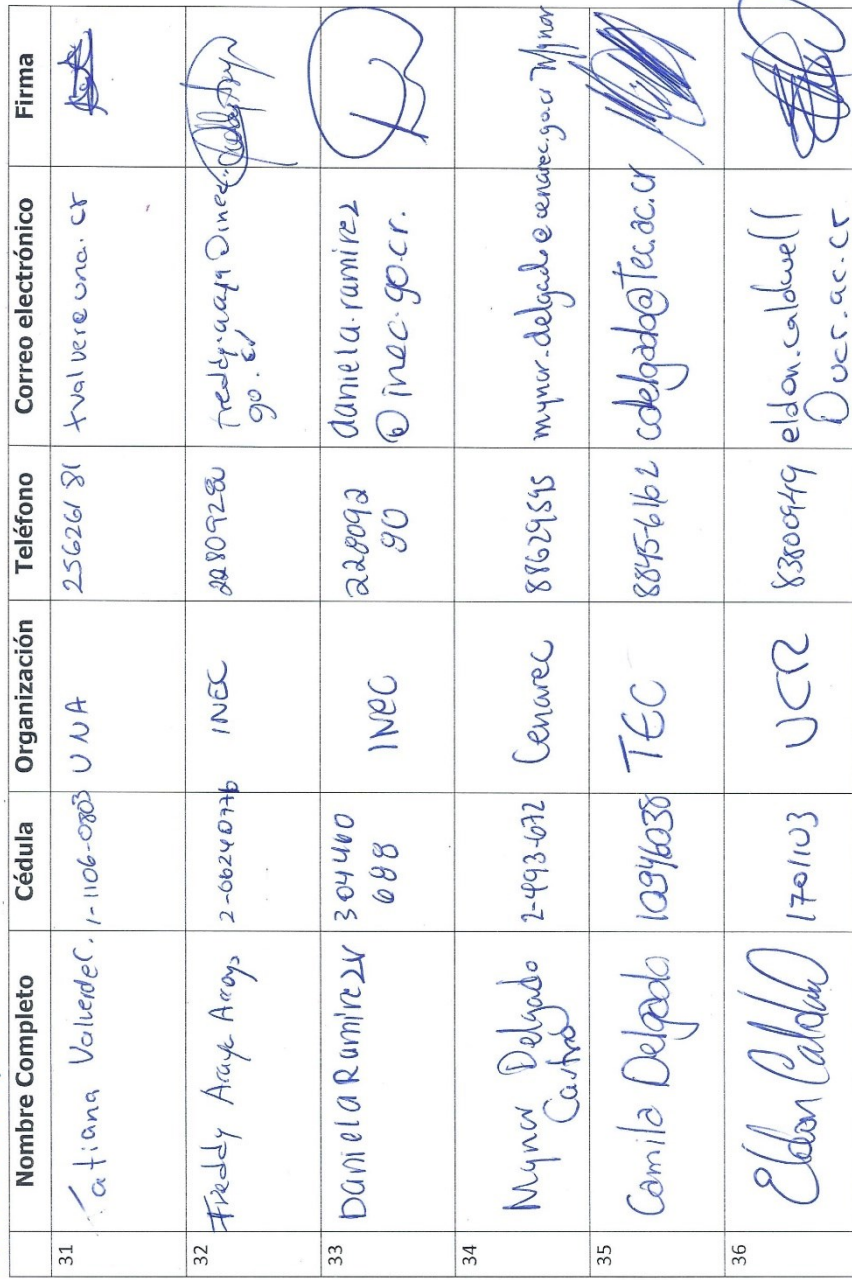 Nombre Completo Cédula Organización Teléfono Correo electrónico Firma
31 Tatiana Valverde C. 1-1106-0803 UNA 25626181 tvalvere una.cr
32 Freddy Araya Araya INEC
go.cr
33 Daniela Ramírez V 304400 INEC 228092 daniela.ramirez
688 90 @inec.go.cr.
34 Mynor Delgado 2-493-672 Cenarec 88629595 mynor.delgado@cenarec.go.cr Mynor
Castro
35 Camila Delgado TEC 8845-6162 cdelgado@tec.ac.cr
36 Eldon Caldwell 1701103 UCR 83800949 eldon.caldwell
@ucr.ac.cr